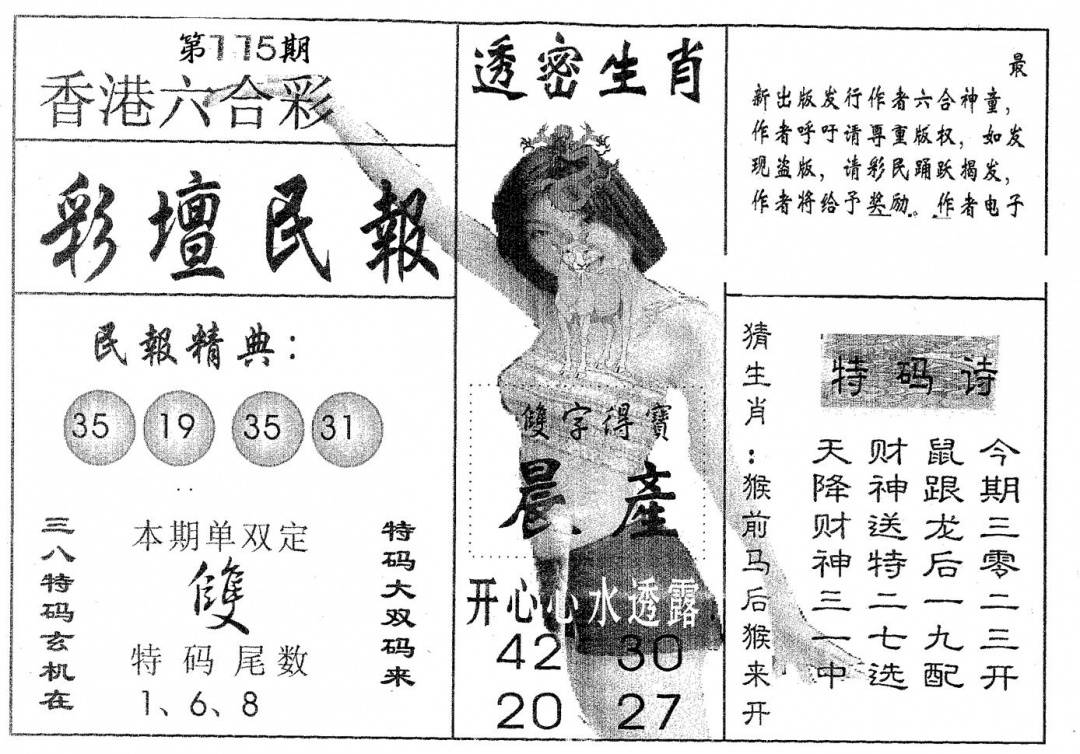 第115期
香港六合彩
彩壇民報
民報精典：
35 19 35 31
三八特码玄机在
本期单双定
雙
特码尾数
1、6、8
特码大双码来
透密生肖
雙字得寶
晨產
开心心水透露
42 30
20 27
最
新出版发行作者六合神童，
作者呼吁请尊重版权，如发
现盗版，请彩民踊跃揭发，
作者将给予奖励。作者电子
猜生肖：猴前马后猴来开
特码诗
今期三零二三开
鼠跟龙后一九配
财神送特二七选
天降财神三一中